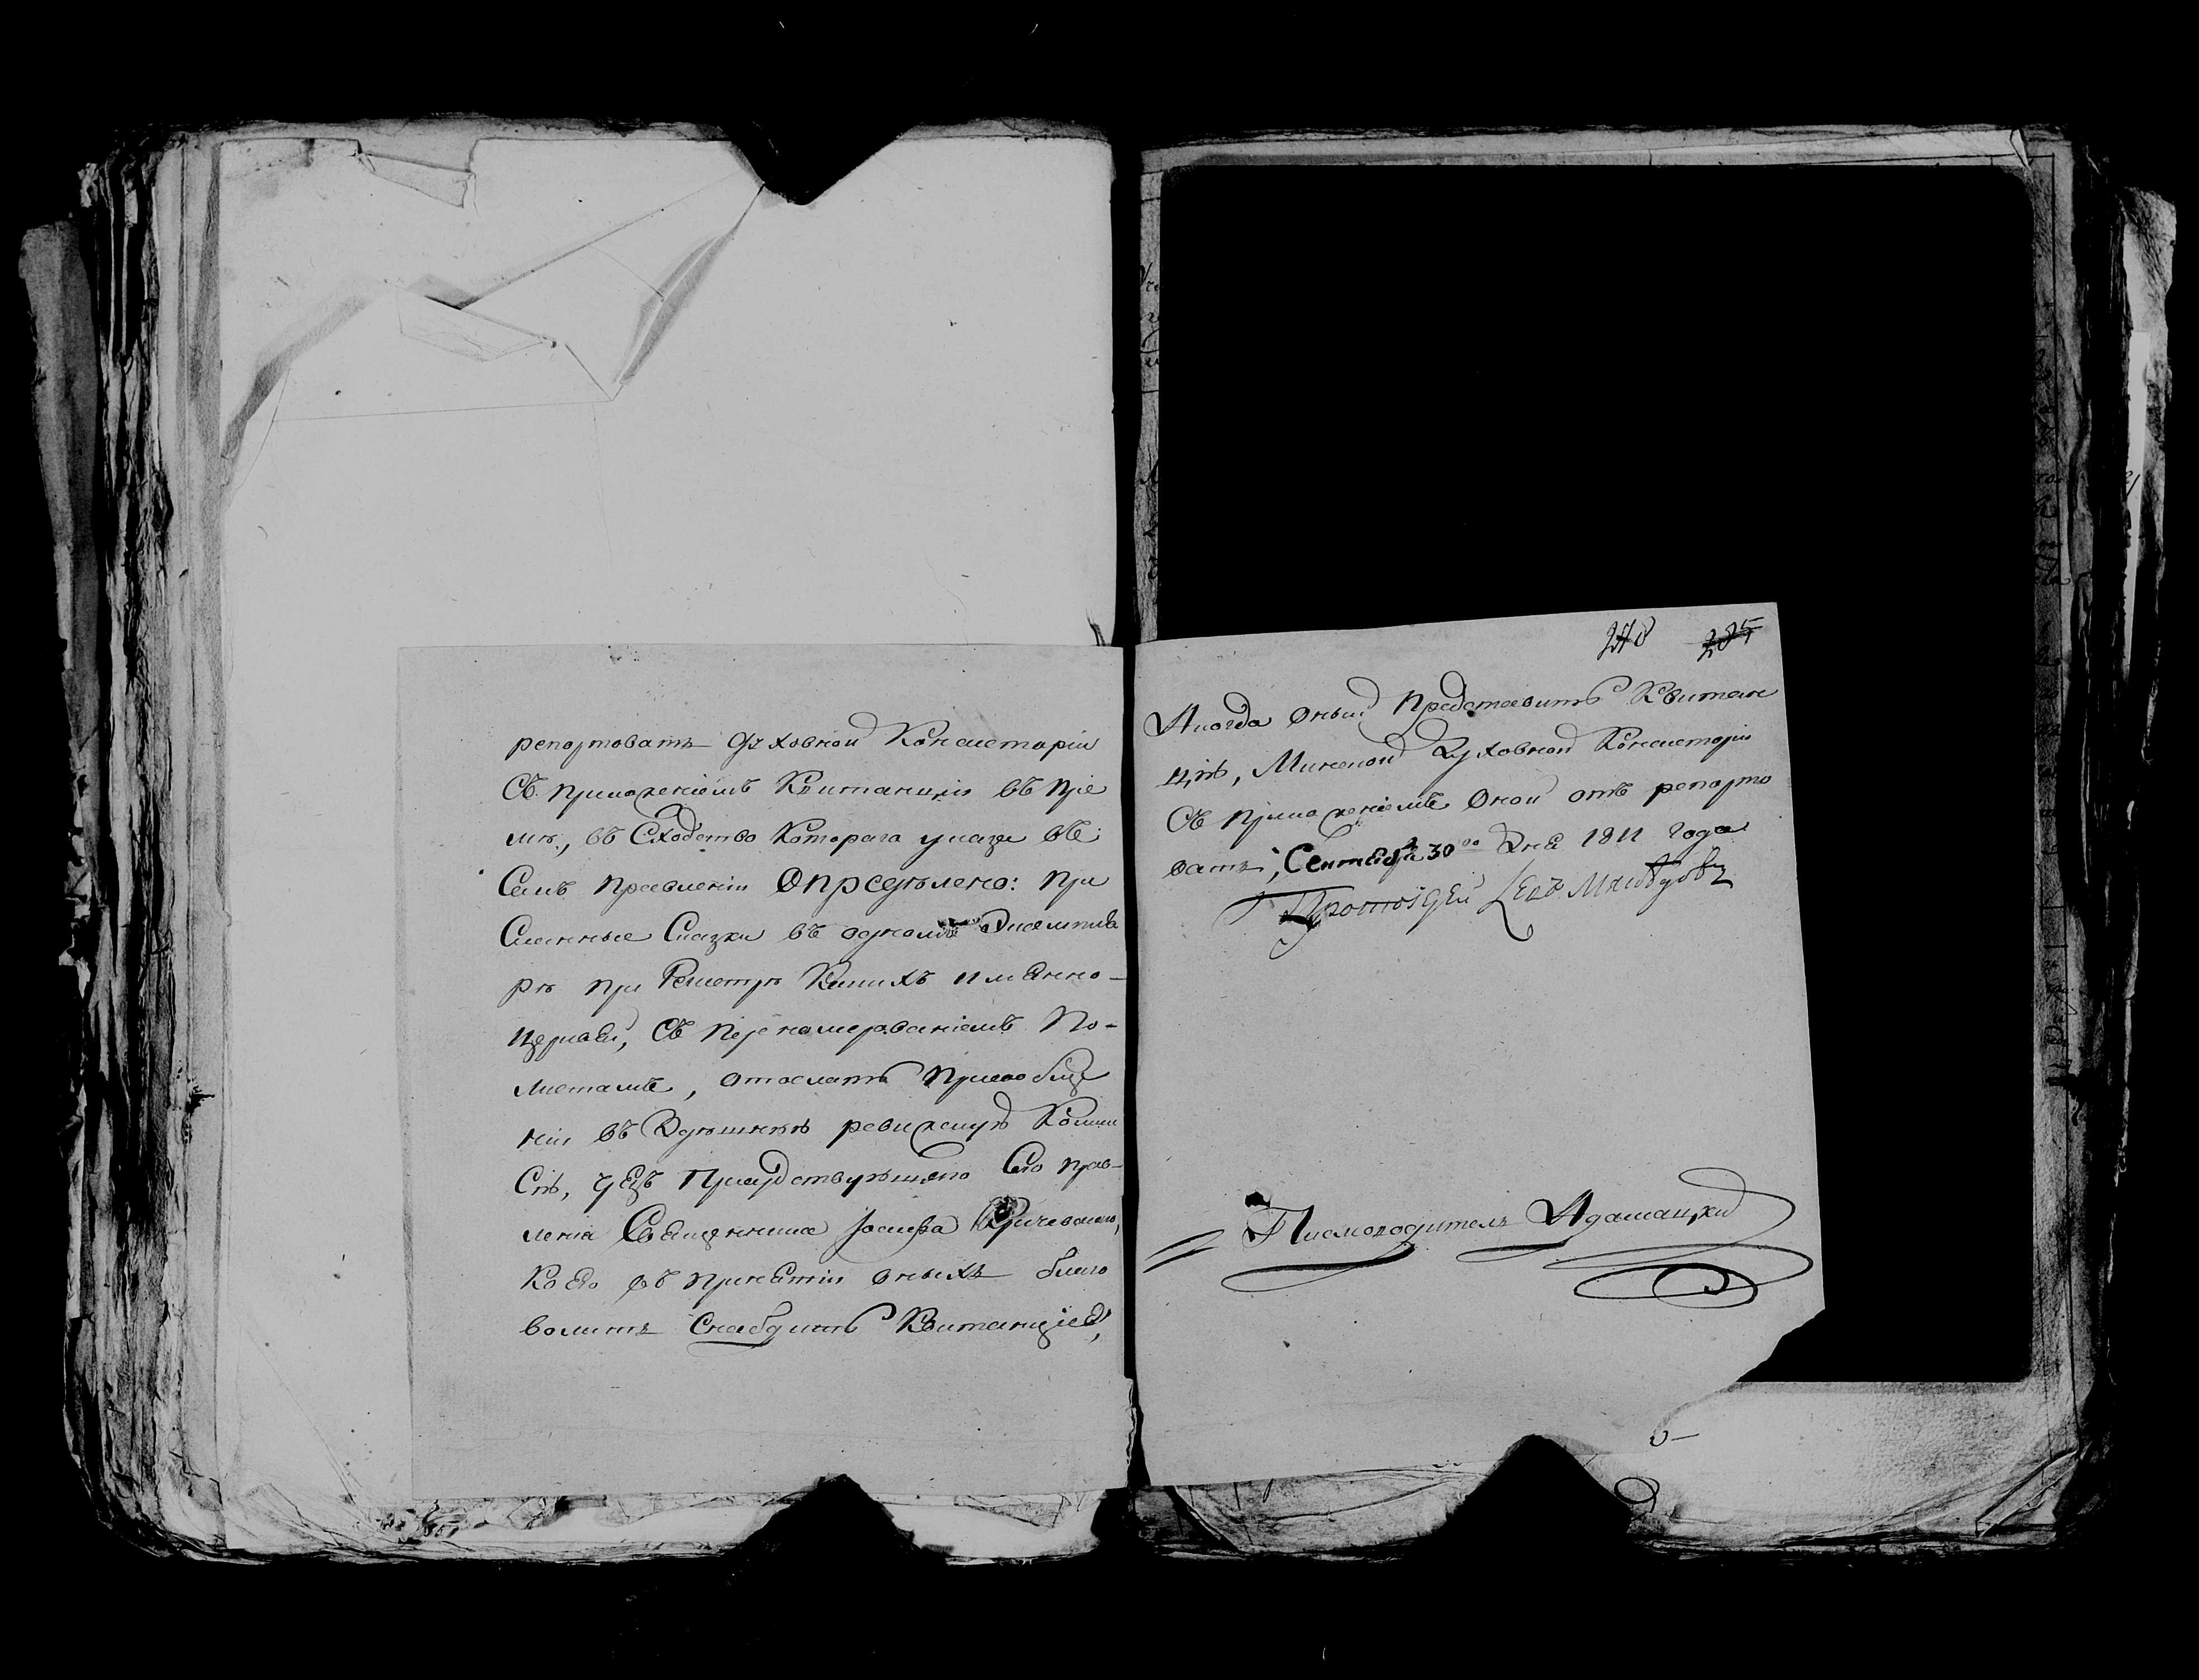 репортовать Духовной Консисторіи
Съ приложеніемъ Квитанціи въ пріе
мѣ, въ Сходство Котораго указа въ
Семъ правленіи Опредѣлено: При
Сланные Сказки въ одномъ Экземпля
рѣ при Реэстрѣ Каких имянно
церквей, Съ перенамерованіемъ По-
листамъ, отослать при сообще
ніи въ Здѣшнюю ревижскую Комми
Сію, чрезъ Присудствующаго Сего прав-
ленія Священника Іосифа
Коего въ принятіи оныхъ благо
волить Снабдить Квитанціею,
248 285
Икогда оный Представитъ Квитан
цію, Минской Духовной Консисторіи
Съ приложеніемъ оной отъ репорто
вать, Сентября 30го Дня 1811 года
Протоіерей
Писмоводитель Адамацкій